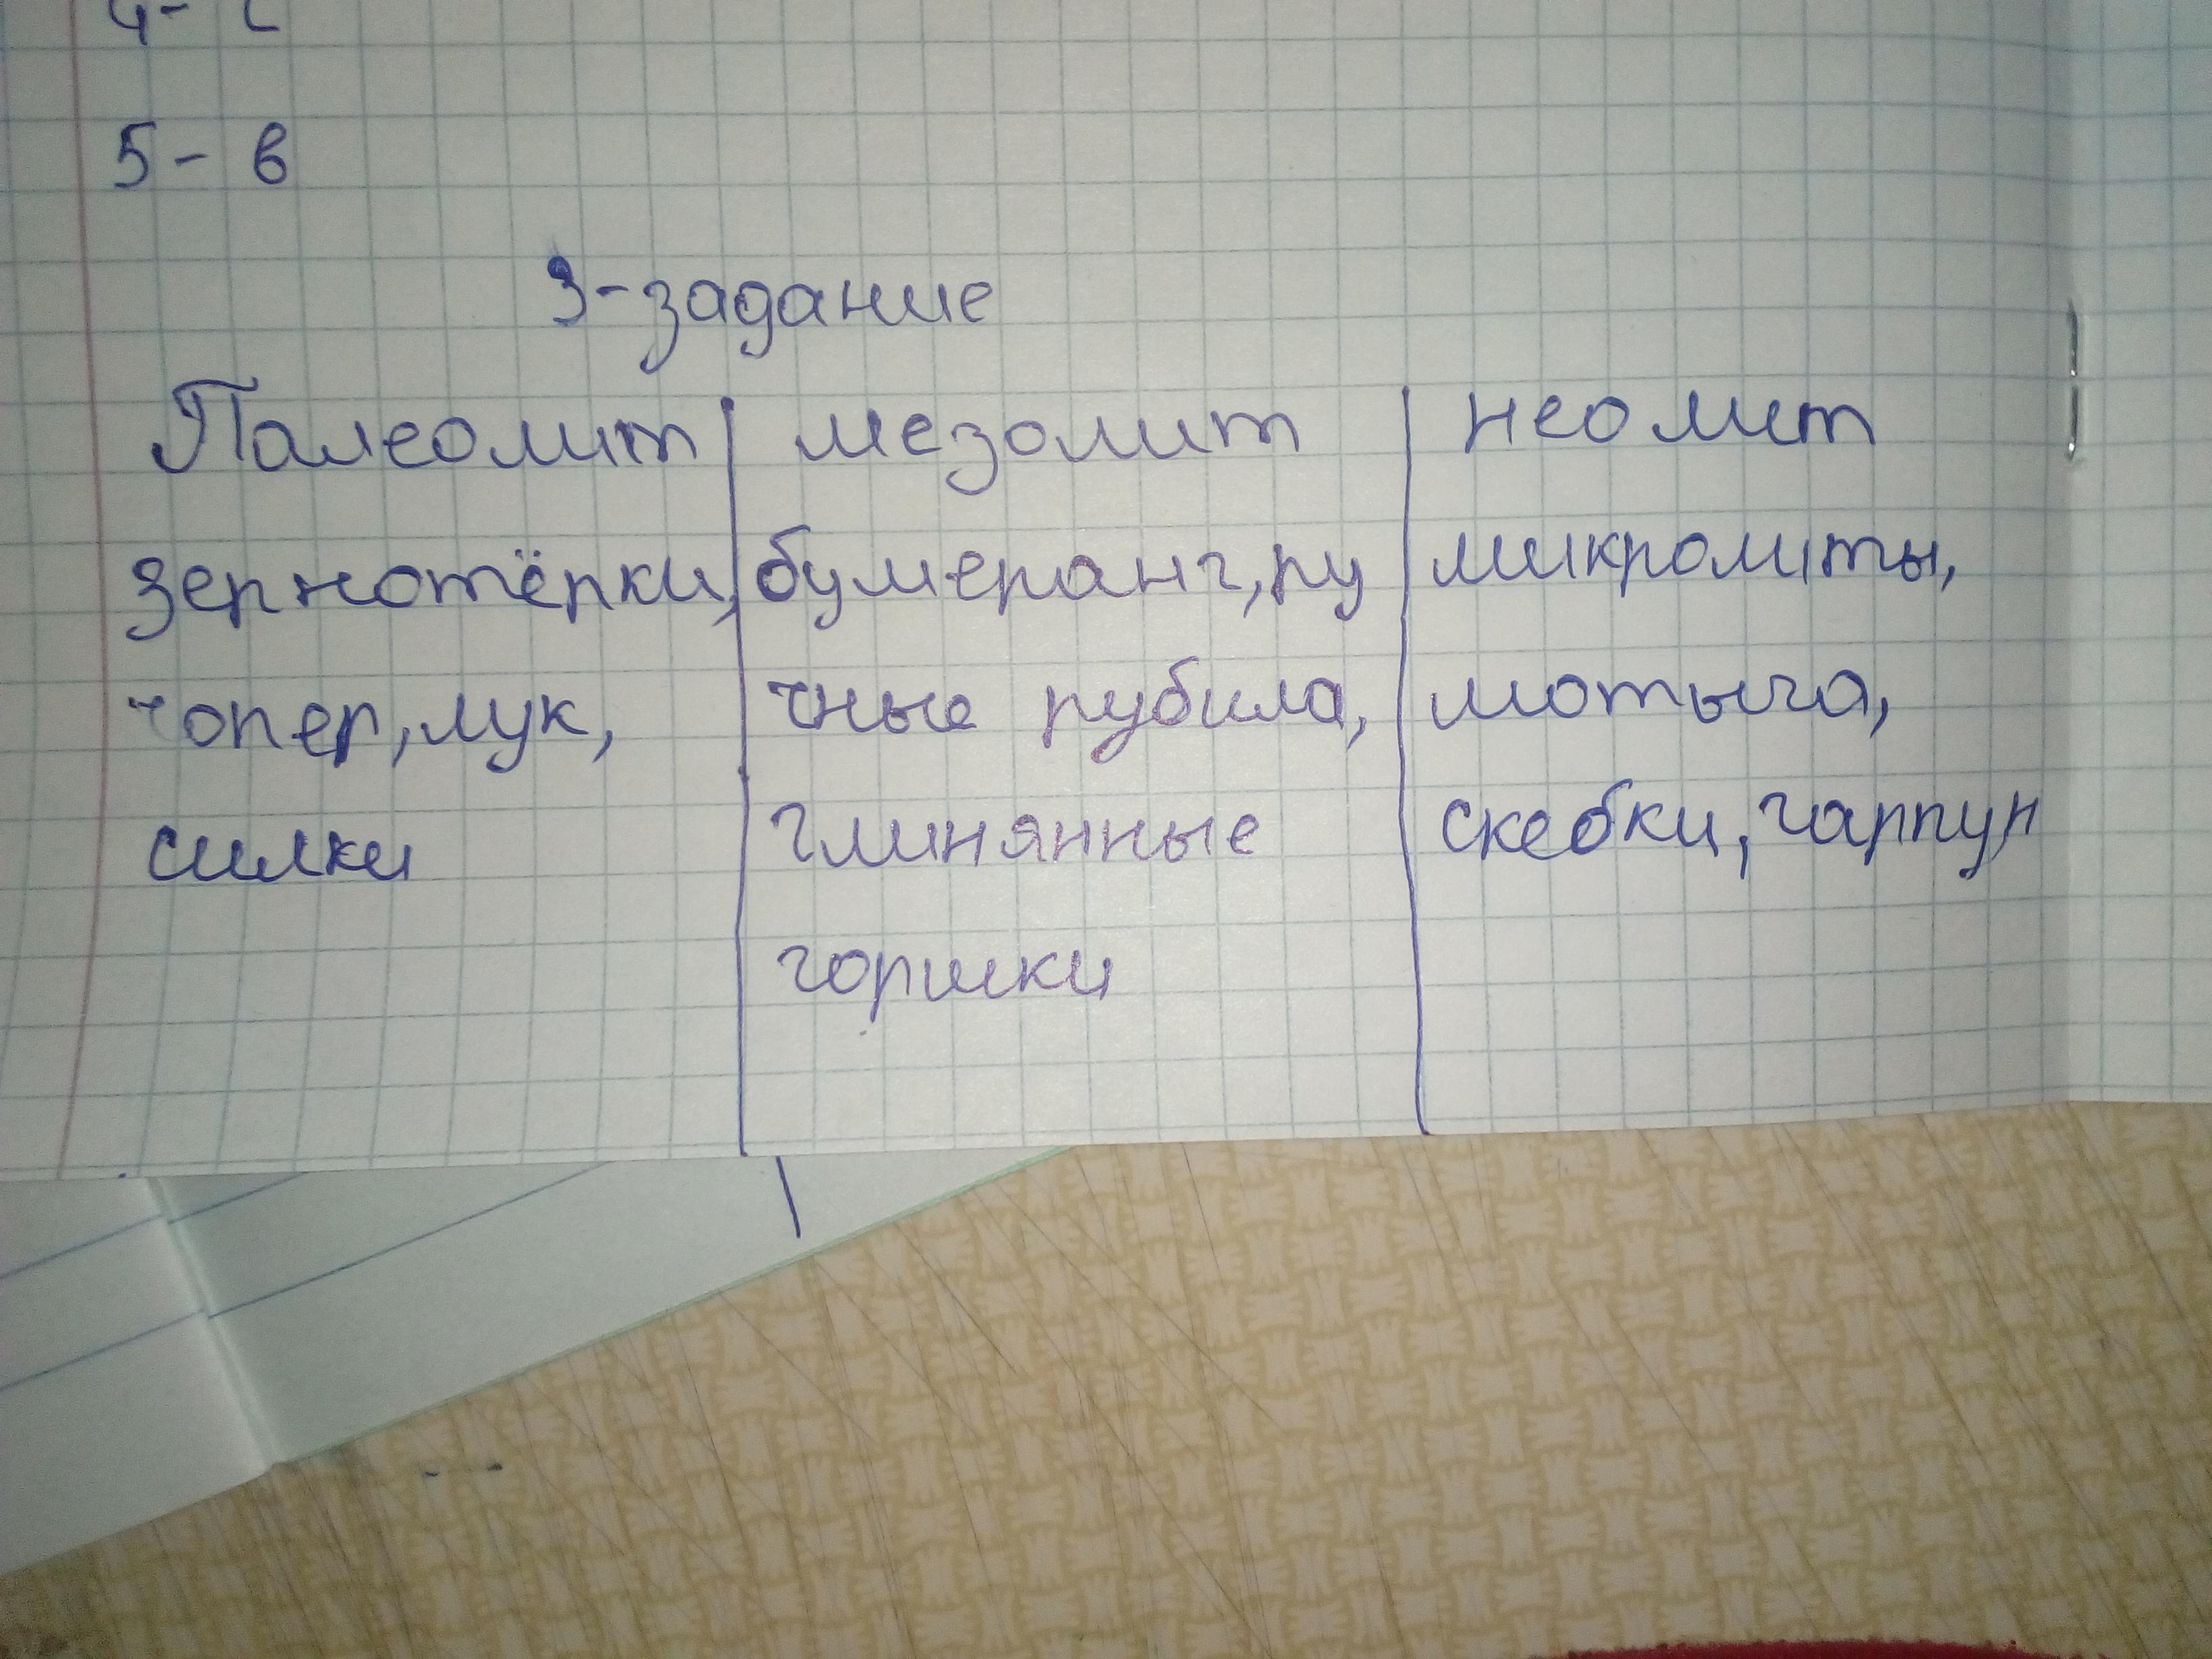 5- в
3-задание
Палеолит мезолит неолит
зернотёрки, бумеранг, ру микролиты,
чопер, лук, чные рубила, мотыга,
силки глинянные скебки, гарпун
горшки